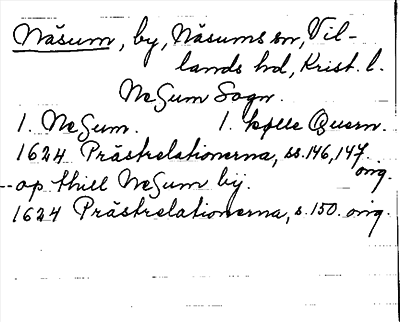 Näsum, by, Näsums sn, Vil-
lands hd, Krist. l.
Neſum Sogn.
1. Neſum. 1. kølle Quern.
1624 Prästrelationerna, ss. 146, 147. orig.
-- op thill Neſum by.
1624 Prästrelationerna, s. 150. orig.